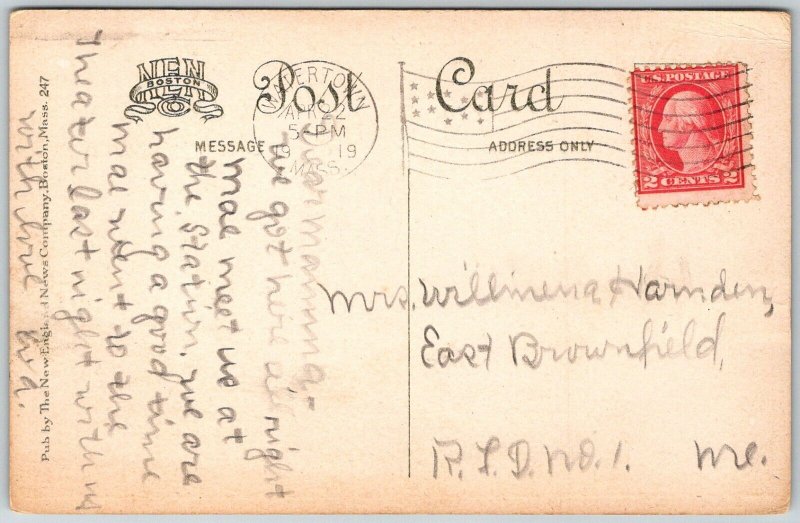 NEN
BOSTON
CO
Post Card
MESSAGE
ADDRESS ONLY
WATERTOWN
APR 22
5-PM
19 19
MASS.
U.S. POSTAGE
2 CENTS 2
Dear mamma,-
we got here all night
mae meet us at
the Station. we are
having a good time
mae went to the
Theater last night with us
with love
Mrs. Willmena Harnden,
East Brownfield,
R.F.D. no. 1. me.
Pub by The New England News Company, Boston, Mass. 247